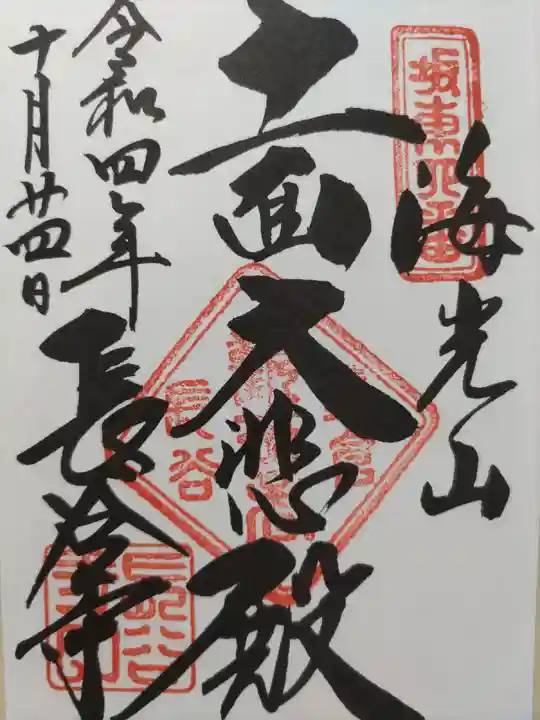 坂東四番
海光山
十一面大悲殿
長谷
長谷寺
令和四年
十月廿四日